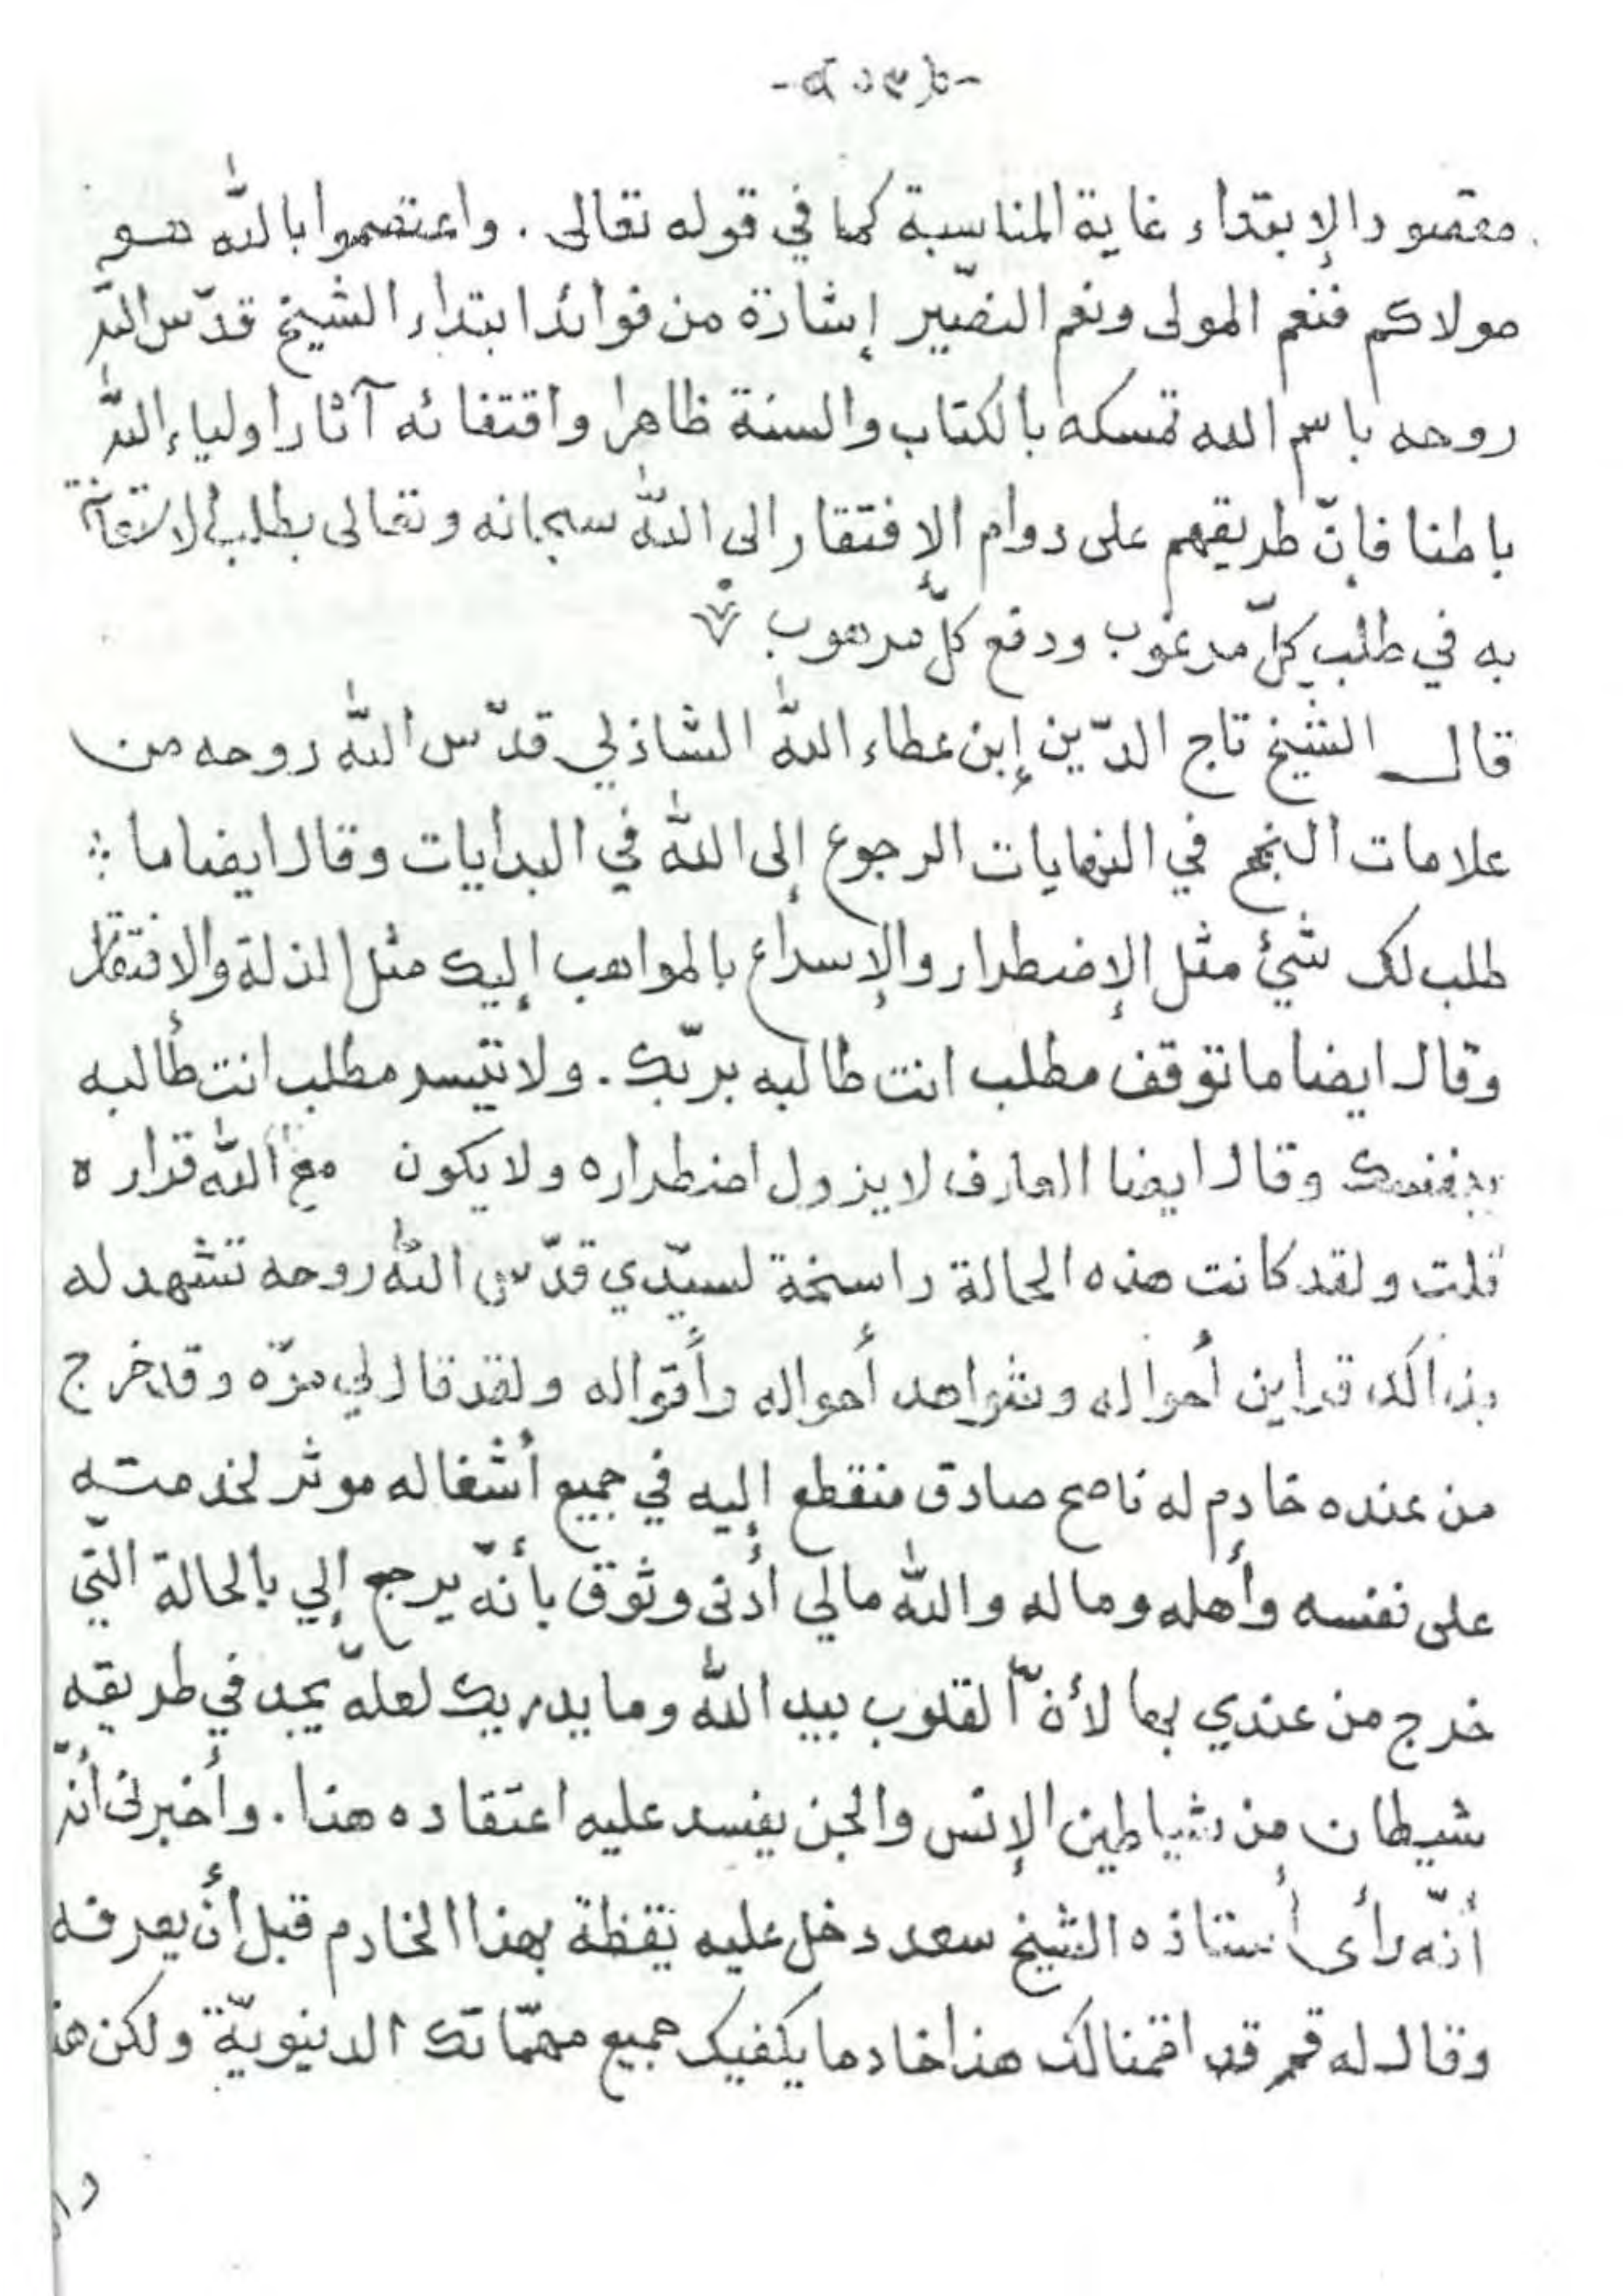 مقصود الإبتداء غاية المناسبة كما في قوله تعالى . واعتصموا بالله هو
مولاكم فنعم المولى ونعم النصير إشارة من فوائد ابتداء الشيخ قدّس اللّه
روحه باسم الله تمسكه بالكتاب والسنة ظاهرا واقتفائه آثار اولياء اللّه
باطنا فإنّ طريقهم على دوام الإفتقار الى اللّه سبحانه وتعالى بطلب الاستعانة
به في طلب كلّ مرغوب ودفع كلّ مرهوب
قال الشيخ تاج الدّين إبن عطاء اللّه الشاذلي قدّس اللّه روحه من
علامات النجح في النهايات الرجوع إلى اللّه في البدايات وقال ايضا ما
طلب لك شيئ مثل الإضطرار والإسراع بالمواهب إليك مثل الذلة والافتقار
وقال ايضا ما توقف مطلب انت طالبه بربّك . ولا تيسر مطلب انت طالبه
بنفسك وقال ايضا العارف لا يزول اضطراره ولا يكون مع اللّه قراره
قلت ولقد كانت هذه الحالة راسخة لسيّدي قدّس اللّه روحه تشهد له
بذالك قراين أحواله وشواهد أحواله وأقواله ولقد قال لي مرّة وقد خرج
من عنده خادم له ناصح صادق منقطع إليه في جميع أشغاله موثر لخدمته
على نفسه وأهله وماله واللّه مالي أدنى وثوق بأنّه يرجع إلي بالحالة الّتي
خرج من عندي بها لأنّ القلوب بيد اللّه وما يدريك لعلّه يجد في طريقه
شيطان من شياطين الإنس والجن يفسد عليه اعتقاده هذا . وأخبرنى أنّه
أنّه رأى أستاذه الشيخ سعد دخل عليه يقظة بهذا الخادم قبل أن يعرفه
وقال له قم قد اقمنا لك هذا خادما يكفيك جميع مهمّاتك الدنيويّة ولكن هذ